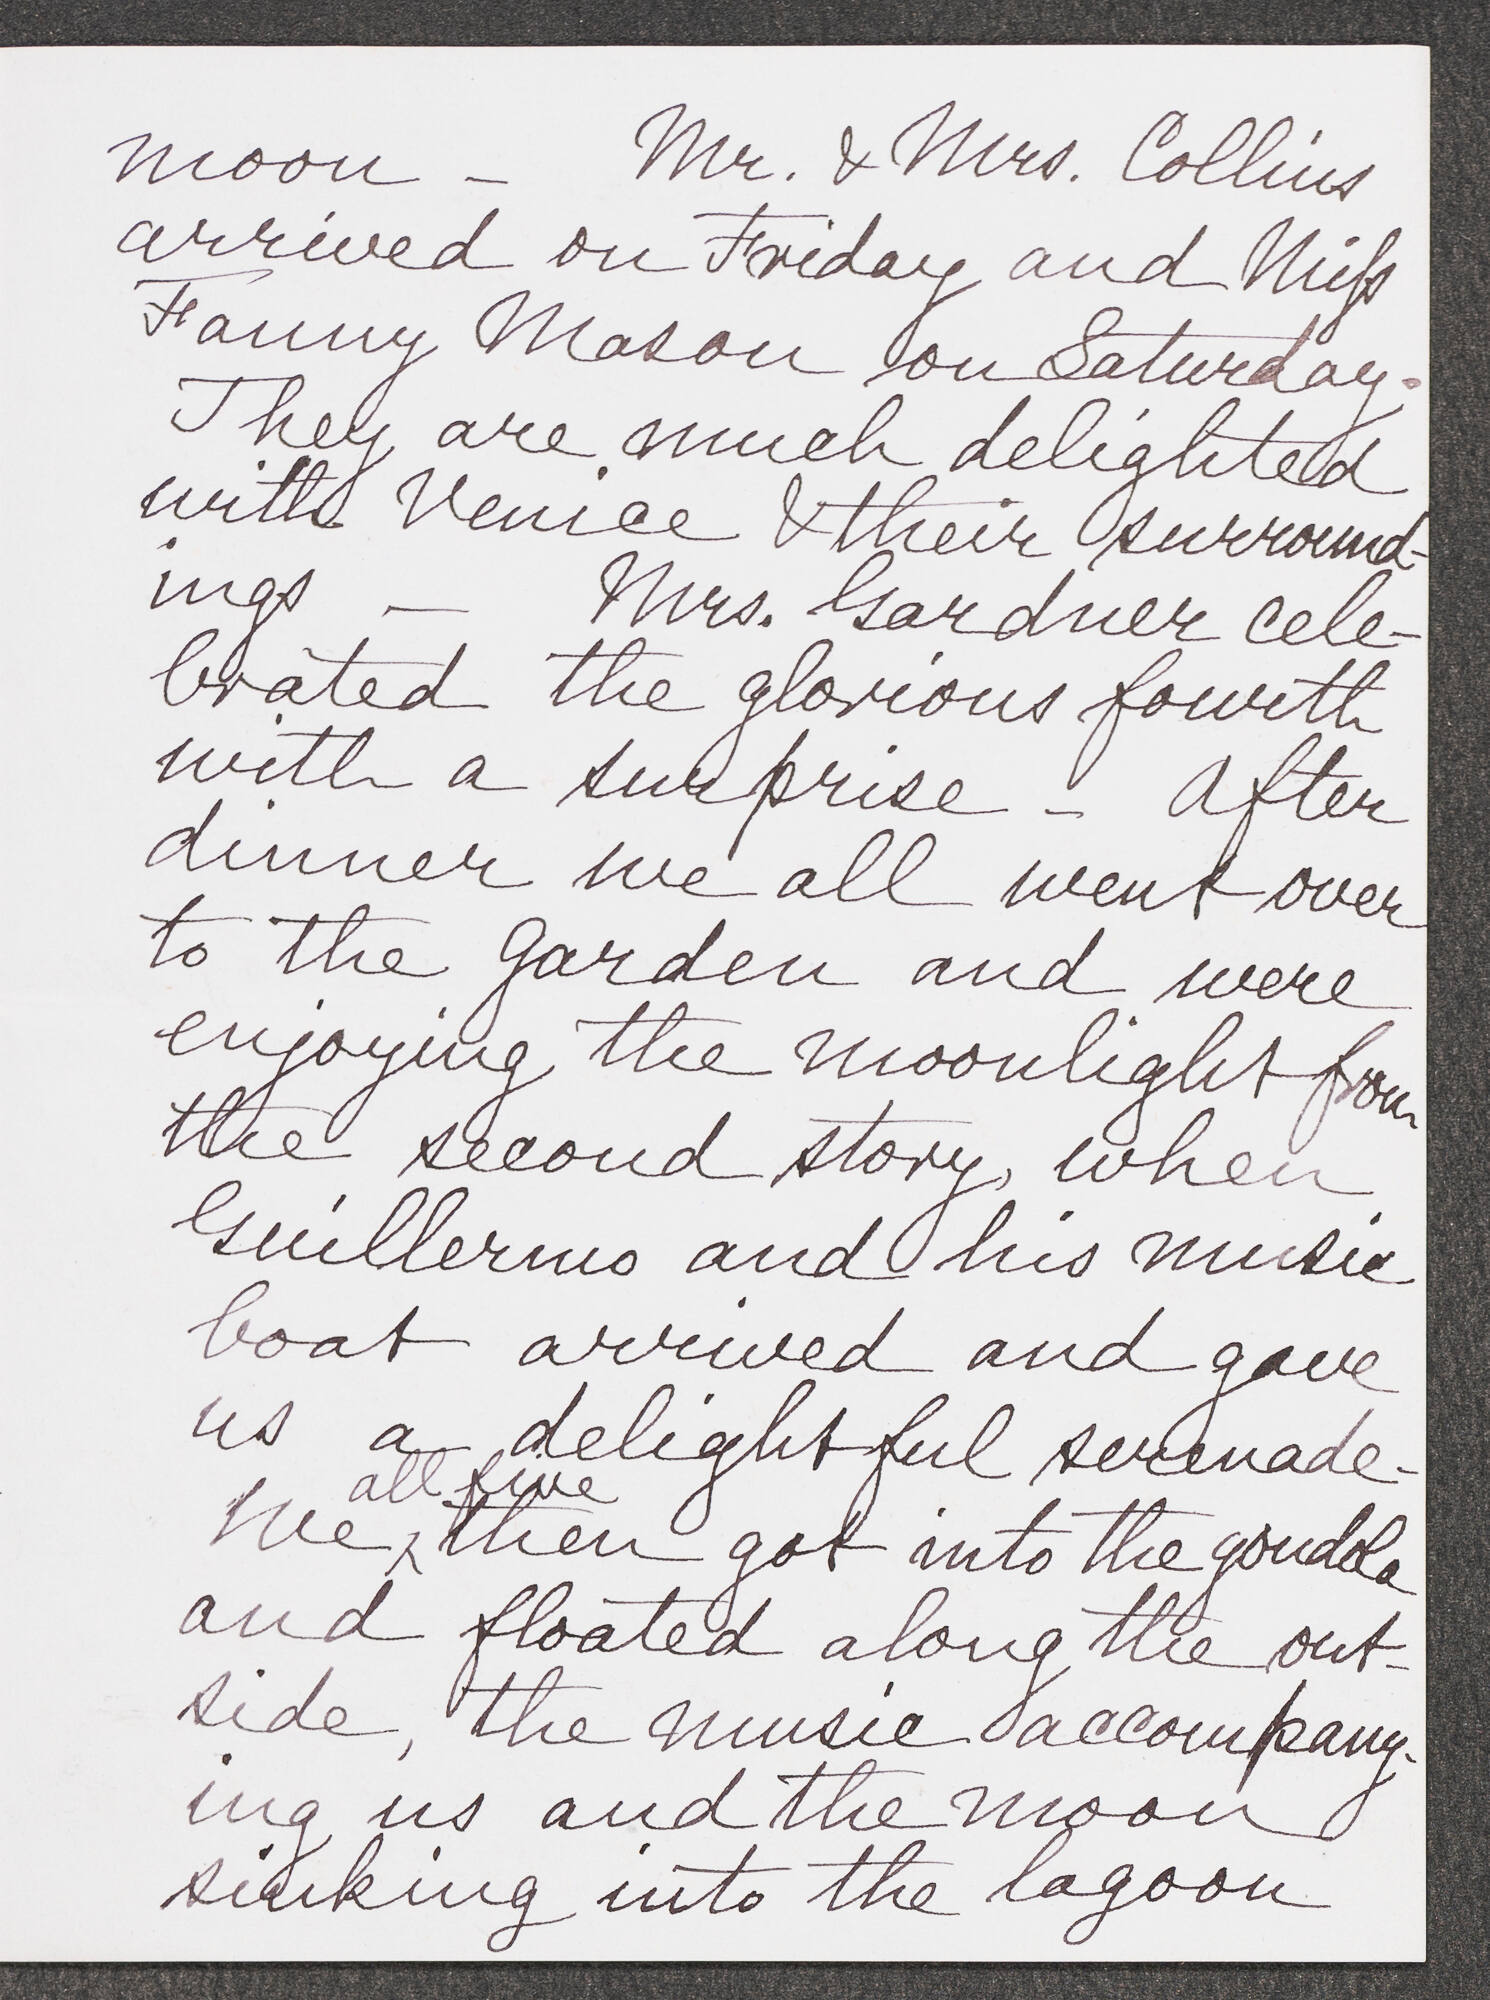 moon – Mr. & Mrs. Collins
arrived on Friday and Miss
Fanny Mason on Saturday.
They are much delighted
with Venice & their surround-
ings – Mrs. Gardner cele-
brated the glorious fourth
with a surprise – After
dinner we all went over
to the Garden and were
enjoying the moonlight from
the second story, when
Guillermo and his music
boat arrived and gave
us a delightful serenade-
all five
We ^ then got into the gondola
and floated along the out-
side, the music accompany-
ing us and the moon
sinking into the lagoon